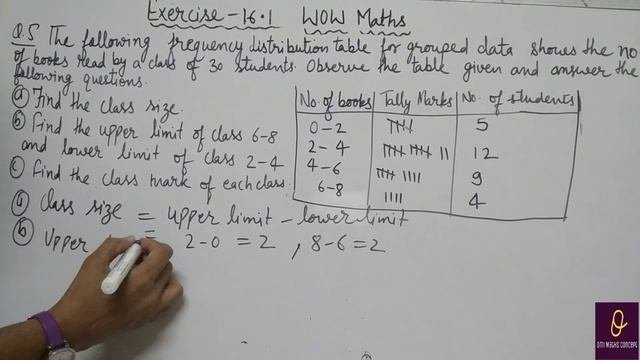 Exercise-16.1 WOW Maths
Q.5 The following frequency distribution table for grouped data shows the no
of books read by a class of 30 students. Observe the table given and answer the
following questions.
(a) Find the class size.
(b) Find the upper limit of class 6-8
and lower limit of class 2-4
(c) Find the class mark of each class.
No. of books Tally Marks No. of students
0-2 5
2-4 12
4-6 9
6-8 4
(a) Class size = upper limit - lower limit
= 2-0 = 2 , 8-6=2
(b) Upper
OMI MATHS CONCEPT